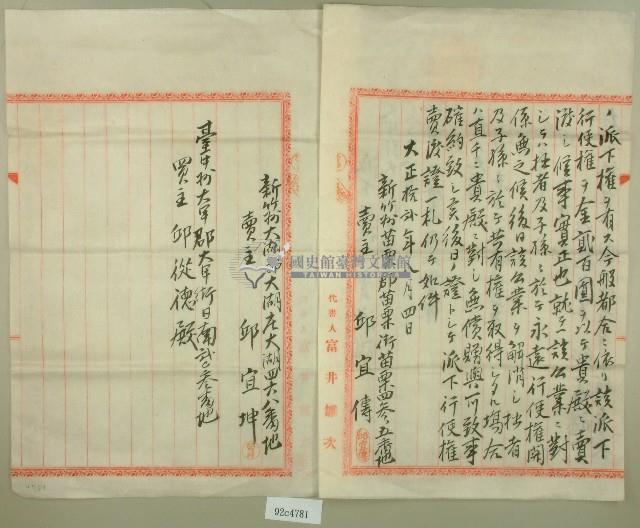 ノ派下權ヲ有ス今般都合ニ依リ該派下
行使權ヲ金貳百圓ヲ以テ貴殿ニ賣
渡シ候事實正也就テハ該公業ニ對
シテハ拙者及子孫ニ於テ永遠行使權關
係無之候後日該公業ヲ解消シ拙者
及子孫ニ於テ共有權ヲ取得シタル場合
ハ直チニ貴殿ニ對シ無償贈與可致事
確約致シ爲後日ノ證トシテ派下行使權
賣渡證一札仍テ如件
大正拾 年 月四日
新竹州苗栗郡苗栗街苗栗四參 五番地
賣主 邱宜傳
代書人 富井 次
新竹州大湖郡大湖庄大湖四六八番地
賣主 邱宜坤
臺中州大甲郡大甲街日南 參番地
買主 邱從德殿
國史館臺灣文獻館
TAIWAN HISTORICA
92c4781